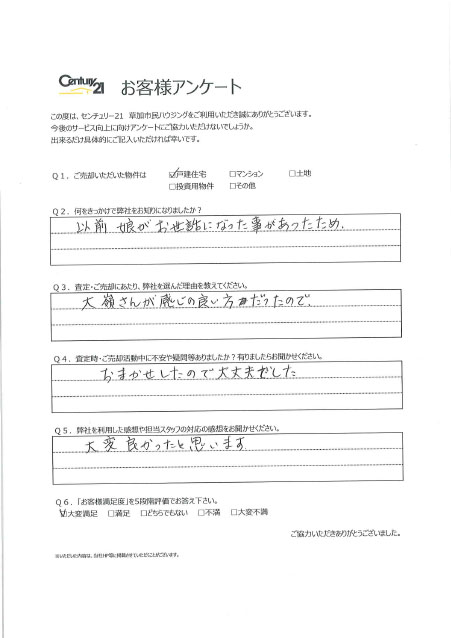 Century 21
お客様アンケート
この度は、センチュリー21 草加市民ハウジングをご利用いただき誠にありがとうございます。
今後のサービス向上に向けアンケートにご協力いただけないでしょうか。
出来るだけ具体的にご記入いただければ幸いです。
Q1. ご売却いただいた物件は ☑戸建住宅 □マンション □土地
□投資用物件 □その他
Q2. 何をきっかけで弊社をお知りになりましたか?
以前 娘がお世話になった事があったため、
Q3. 査定・ご売却にあたり、弊社を選んだ理由を教えてください。
大嶺さんが感じの良い方だったので、
Q4. 査定時・ご売却活動中に不安や疑問等ありましたか?有りましたらお聞かせください。
おまかせしたので大丈夫でした
Q5. 弊社を利用した感想や担当スタッフの対応の感想をお聞かせください。
大変良かったと思います
Q6.「お客様満足度」を5段階評価でお答え下さい。
☑大変満足 □満足 □どちらでもない □不満 □大変不満
ご協力いただきありがとうございました。
※いただいた内容は、当社HP等に掲載させていただくことがございます。